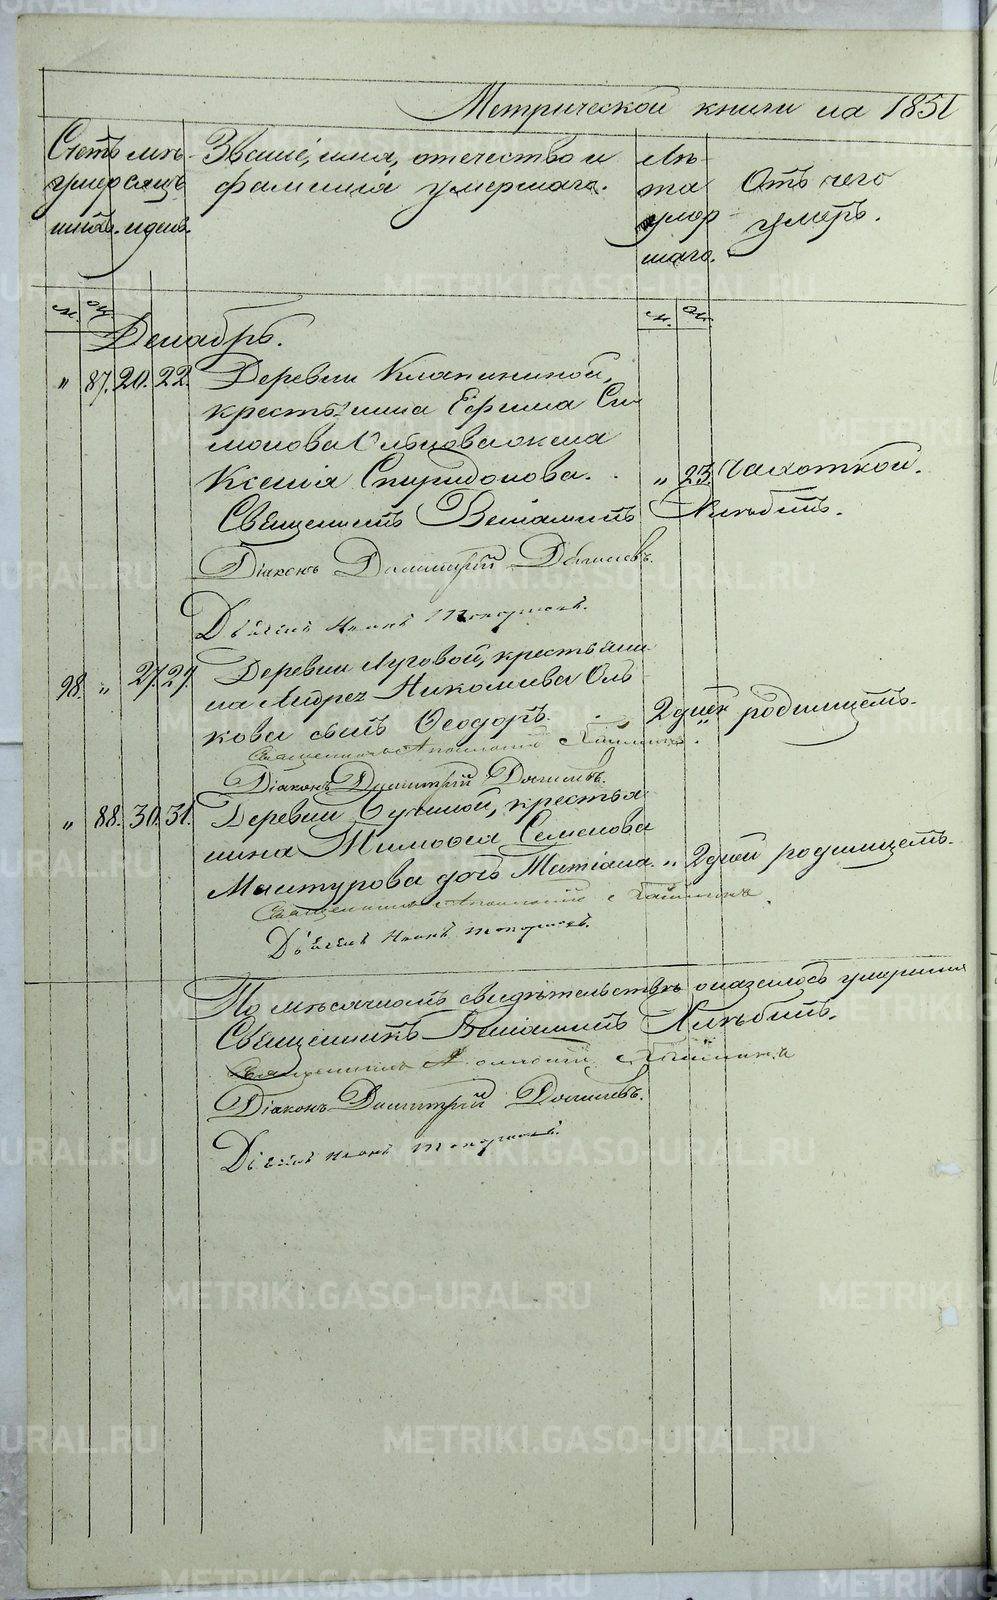 Метрической книги на 1851
Счетъ умершихъ.
мѣсяцъ и день.
Званіе, имя, отечество и
фамилія умершаго.
Лѣта умершаго.
Отъ чего
умеръ.
м. ж.
м. ж.
Декабрь.
„ 87. 20. 22. Деревни Клапининой,
крестьянина Ефима Си
монова жена
Ксенія Спиридонова. „ 23. Чахоткой.
Священникъ Веніаминъ Хлѣбинъ.
Діаконъ Димитрій
Дьячекъ Иоаннъ Топорковъ.
98. „ 27. 29. Деревни Луговой, крестьяни
на Андрея Николаева Оль
кова сынъ Ѳеодоръ. 2 дней „ родимцемъ.
Священникъ Аполлоній
Діаконъ Димитрій
„ 88. 30. 31. Деревни крестья
нина Тимоѳея Семенова
Мантурова дочь Татіана. „ 2 дней родимцемъ.
Священникъ Аполлоній
Дьячекъ Иоаннъ Топорковъ.
По мѣсячномъ свидѣтельствѣ оказалось умершихъ
Священникъ Веніаминъ Хлѣбинъ.
Священникъ Аполлоній
Діаконъ Димитрій
Дьячекъ Иоаннъ Топорковъ.
METRIKI.GASO-URAL.RU